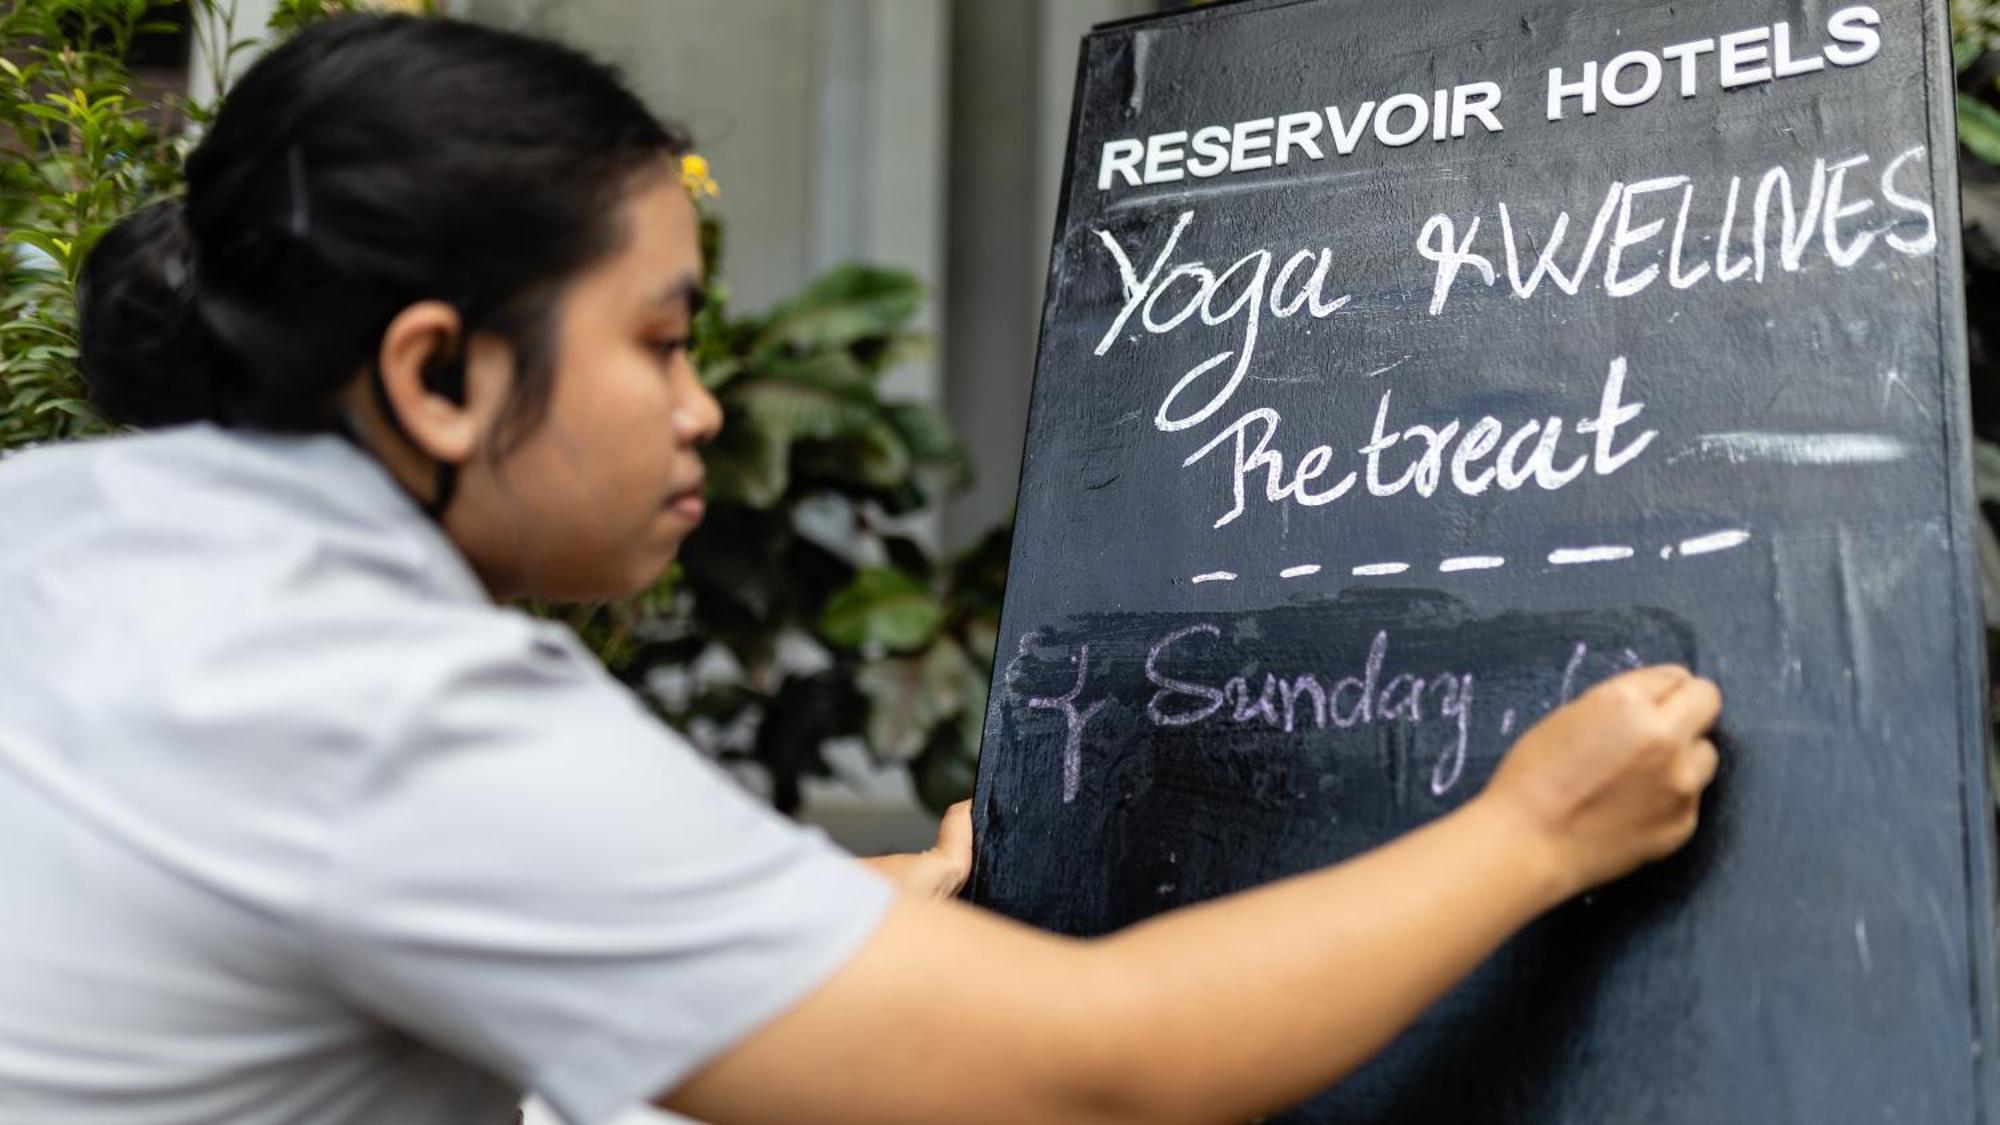 RESERVOIR HOTELS
Yoga & WELLNES
Retreat
Sunday,